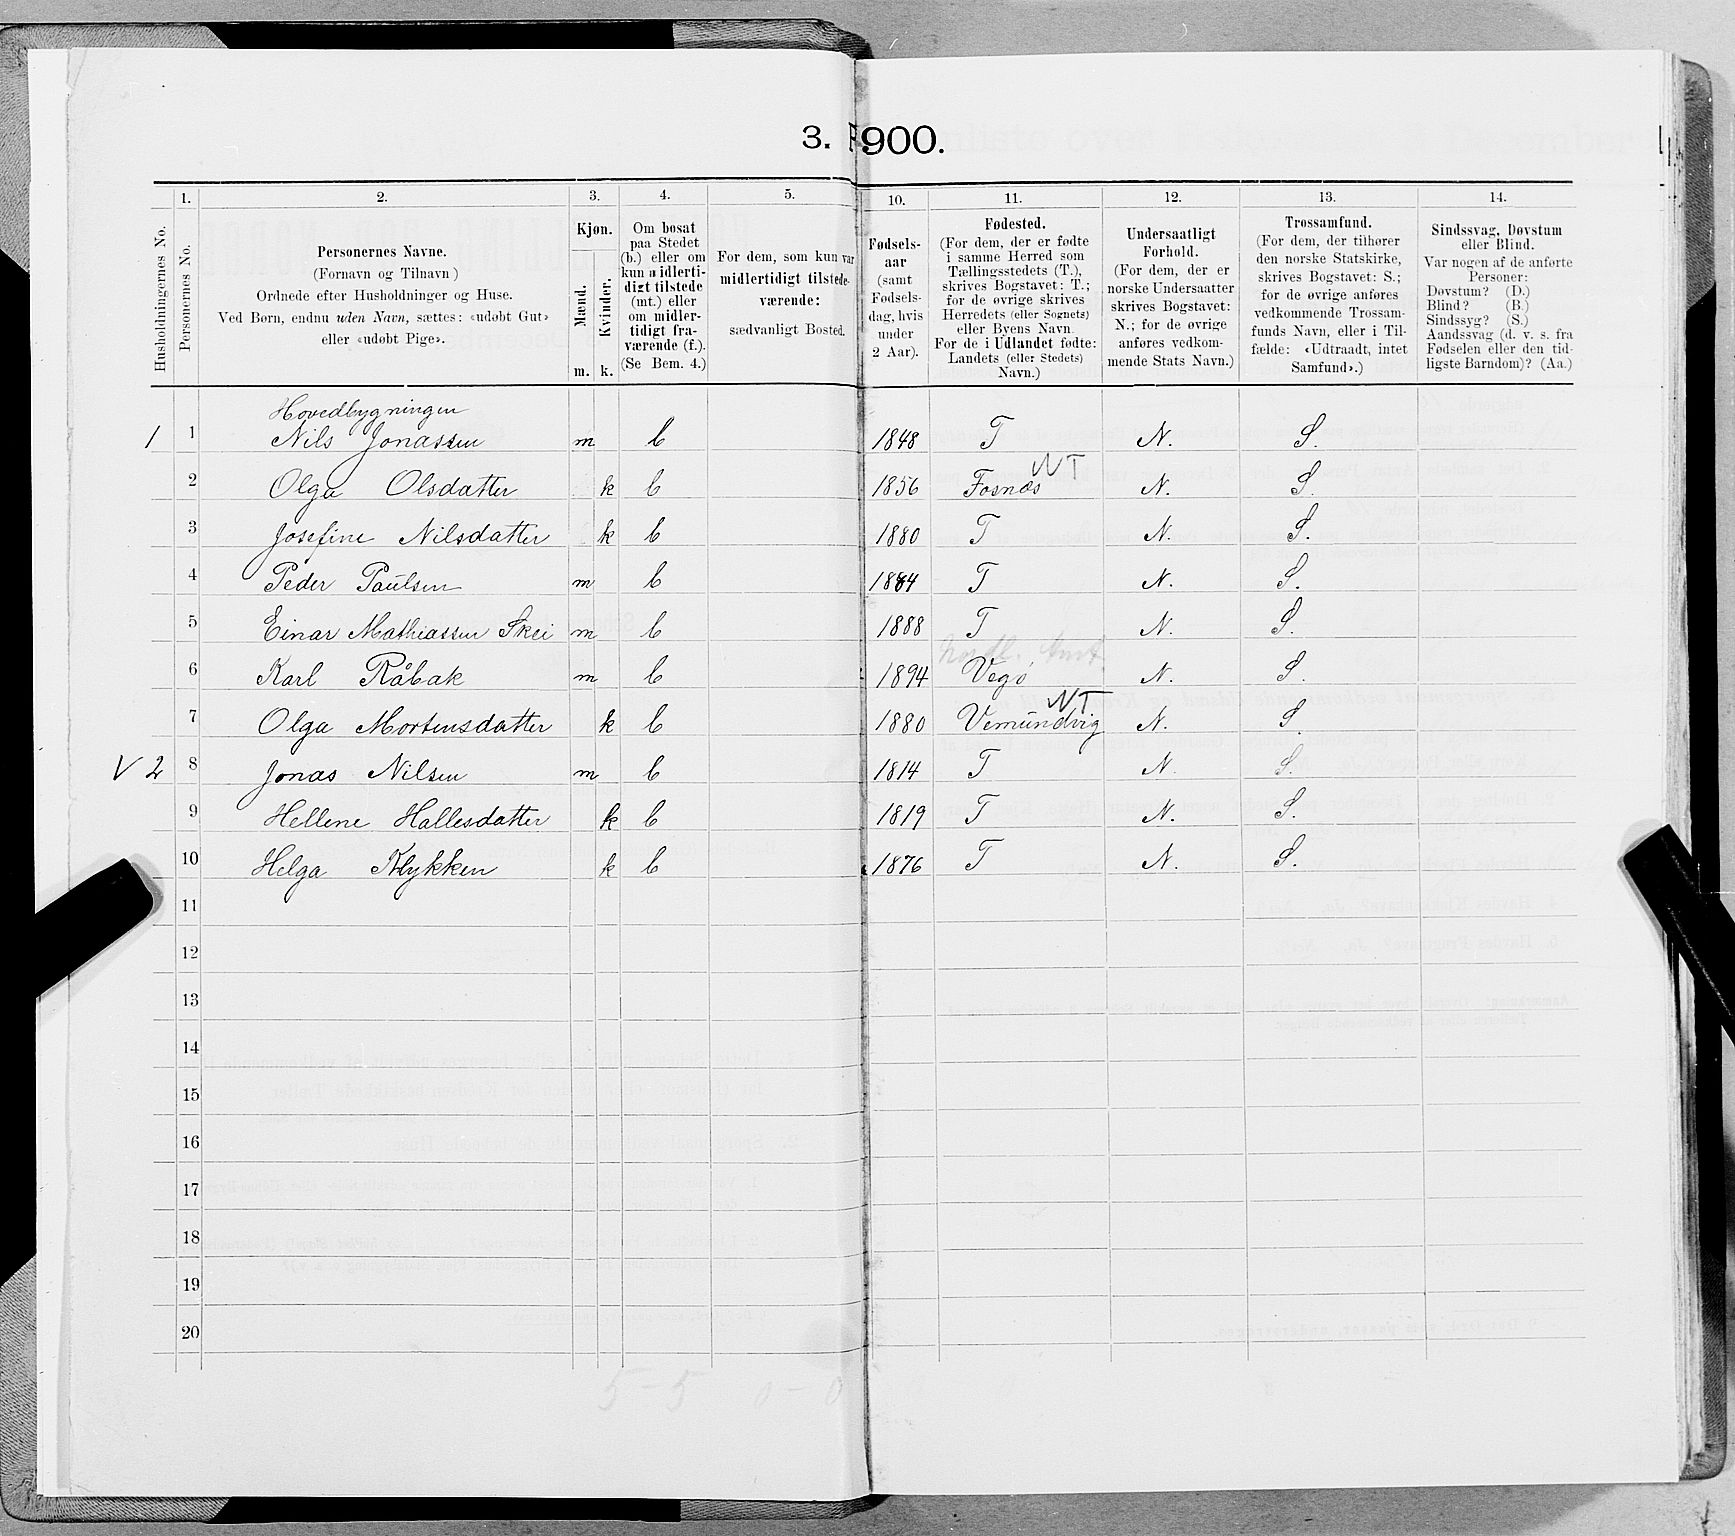 3. F900.
Husholdningernes No.
1.
Personernes No.
2.
Personernes Navne.
(Fornavn og Tilnavn)
Ordnede efter Husholdninger og Huse.
Ved Børn, endnu uden Navn, sættes: «udøbt Gut»
eller «udøbt Pige».
3.
Kjøn.
Mænd.
Kvinder.
m. k.
4.
Om bosat
paa Stedet
(b.) eller om
kun midlerti-
digt tilstede
(mt.) eller
om midler-
tidigt fra-
værende (f.).
(Se Bem. 4.)
5.
For dem, som kun var
midlertidigt tilstede-
værende:
sædvanligt Bosted.
10.
Fødsels-
aar
(samt
Fødsels-
dag, hvis
under
2 Aar).
11.
Fødested.
(For dem, der er fødte
i samme Herred som
Tællingsstedets (T.),
skrives Bogstavet: T.;
for de øvrige skrives
Herredets (eller Sognets)
eller Byens Navn.
For de i Udlandet fødte:
Landets (eller Stedets)
Navn.)
12.
Undersaatligt
Forhold.
(For dem, der er
norske Undersaatter
skrives Bogstavet:
N.; for de øvrige
anføres vedkom-
mende Stats Navn.)
13.
Trossamfund.
(For dem, der tilhører
den norske Statskirke,
skrives Bogstavet: S.;
for de øvrige anføres
vedkommende Trossam-
funds Navn, eller i Til-
fælde: «Udtraadt, intet
Samfund».)
14.
Sindssvag, Døvstum
eller Blind.
Var nogen af de anførte
Personer:
Døvstum? (D.)
Blind? (B.)
Sindssyg? (S.)
Aandssvag (d. v. s. fra
Fødselen eller den tid-
ligste Barndom)? (Aa.)
Hovedbygningen
1 1 Nils Jonassen m b 1848 T N. S.
NT
2 Olga Olsdatter k b 1856 Fosnæs N. S.
3 Josefine Nilsdatter k b 1880 T N. S.
4 Peder Paulsen m b 1884 T N. S.
5 Einar Mathiassen Skei m b 1888 T N. S.
Nordl. Amt.
6 Karl Råbak m b 1894 Vegø N. S.
NT
7 Olga Mortensdatter k b 1880 Vemundvig N. S.
V 2 8 Jonas Nilsen m b 1814 T N. S.
9 Hellene Hallesdatter k b 1819 T N. S.
10 Helga Klykken k b 1876 T N. S.
11
12
13
14
15
16
17
18
19
20
5 - 5 0 - 0